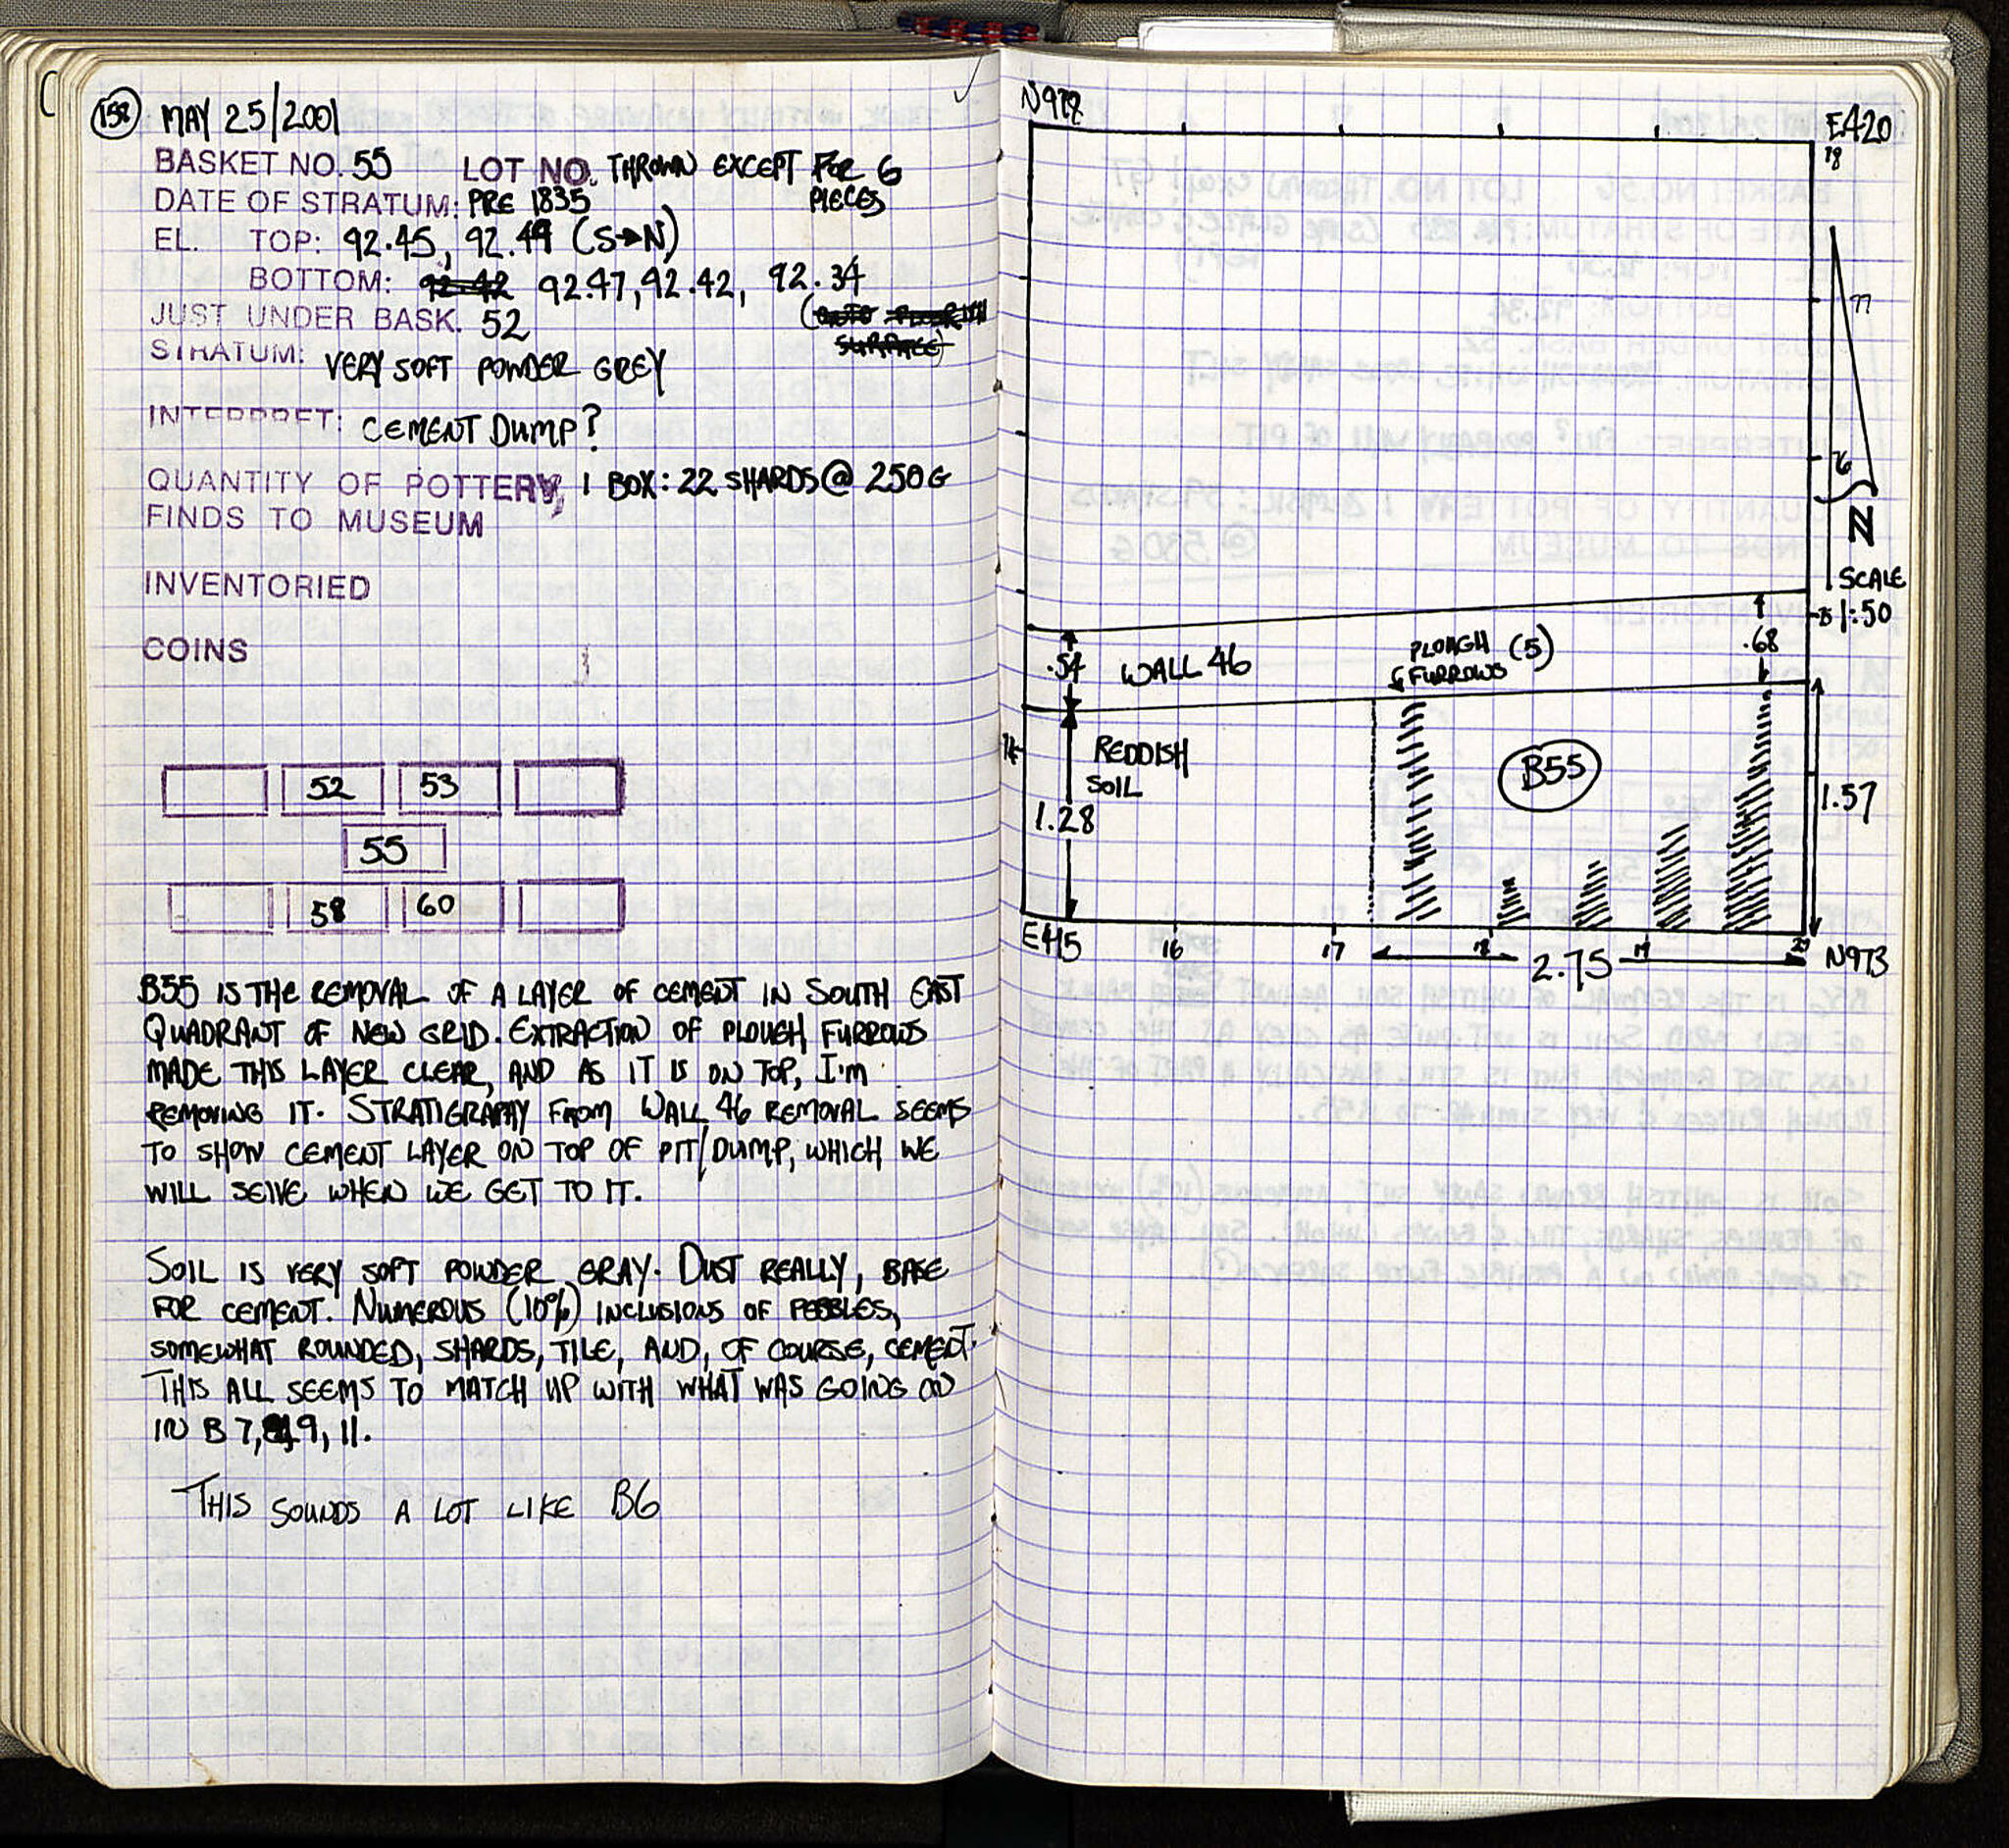 158 MAY 25/2001
BASKET NO. 55 LOT NO. THROWN EXCEPT FOR 6
PIECES
DATE OF STRATUM: PRE 1835
EL. TOP: 92.45, 92.49 (S→N)
BOTTOM: 92.42 92.47, 92.42, 92.34
JUST UNDER BASK. 52
SURFACE)
STRATUM: VERY SOFT POWDER GREY
INTERPRET: CEMENT DUMP?
QUANTITY OF POTTERY, 1 BOX: 22 SHARDS @ 250G
FINDS TO MUSEUM
INVENTORIED
COINS
52 53
55
58 60
B55 IS THE REMOVAL OF A LAYER OF CEMENT IN SOUTH EAST
QUADRANT OF NEW GRID. EXTRACTION OF PLOUGH FURROWS
MADE THIS LAYER CLEAR, AND AS IT IS ON TOP, I'M
REMOVING IT. STRATIGRAPHY FROM WALL 46 REMOVAL SEEMS
TO SHOW CEMENT LAYER ON TOP OF PIT/DUMP, WHICH WE
WILL SEIVE WHEN WE GET TO IT.
SOIL IS VERY SOFT POWDER GRAY. DUST REALLY, BASE
FOR CEMENT. NUMEROUS (10%) INCLUSIONS OF PEBBLES,
SOMEWHAT ROUNDED, SHARDS, TILE, AND, OF COURSE, CEMENT.
THIS ALL SEEMS TO MATCH UP WITH WHAT WAS GOING ON
IN B 7, 9, 11.
THIS SOUNDS A LOT LIKE B6
N978
E420
78
77
76
N
SCALE
1:50
75
.54
WALL 46
PLOUGH (5)
FURROWS
.68
74
REDDISH
SOIL
B55
1.28
1.57
E415
16
17
18
19
20
2.75
N973